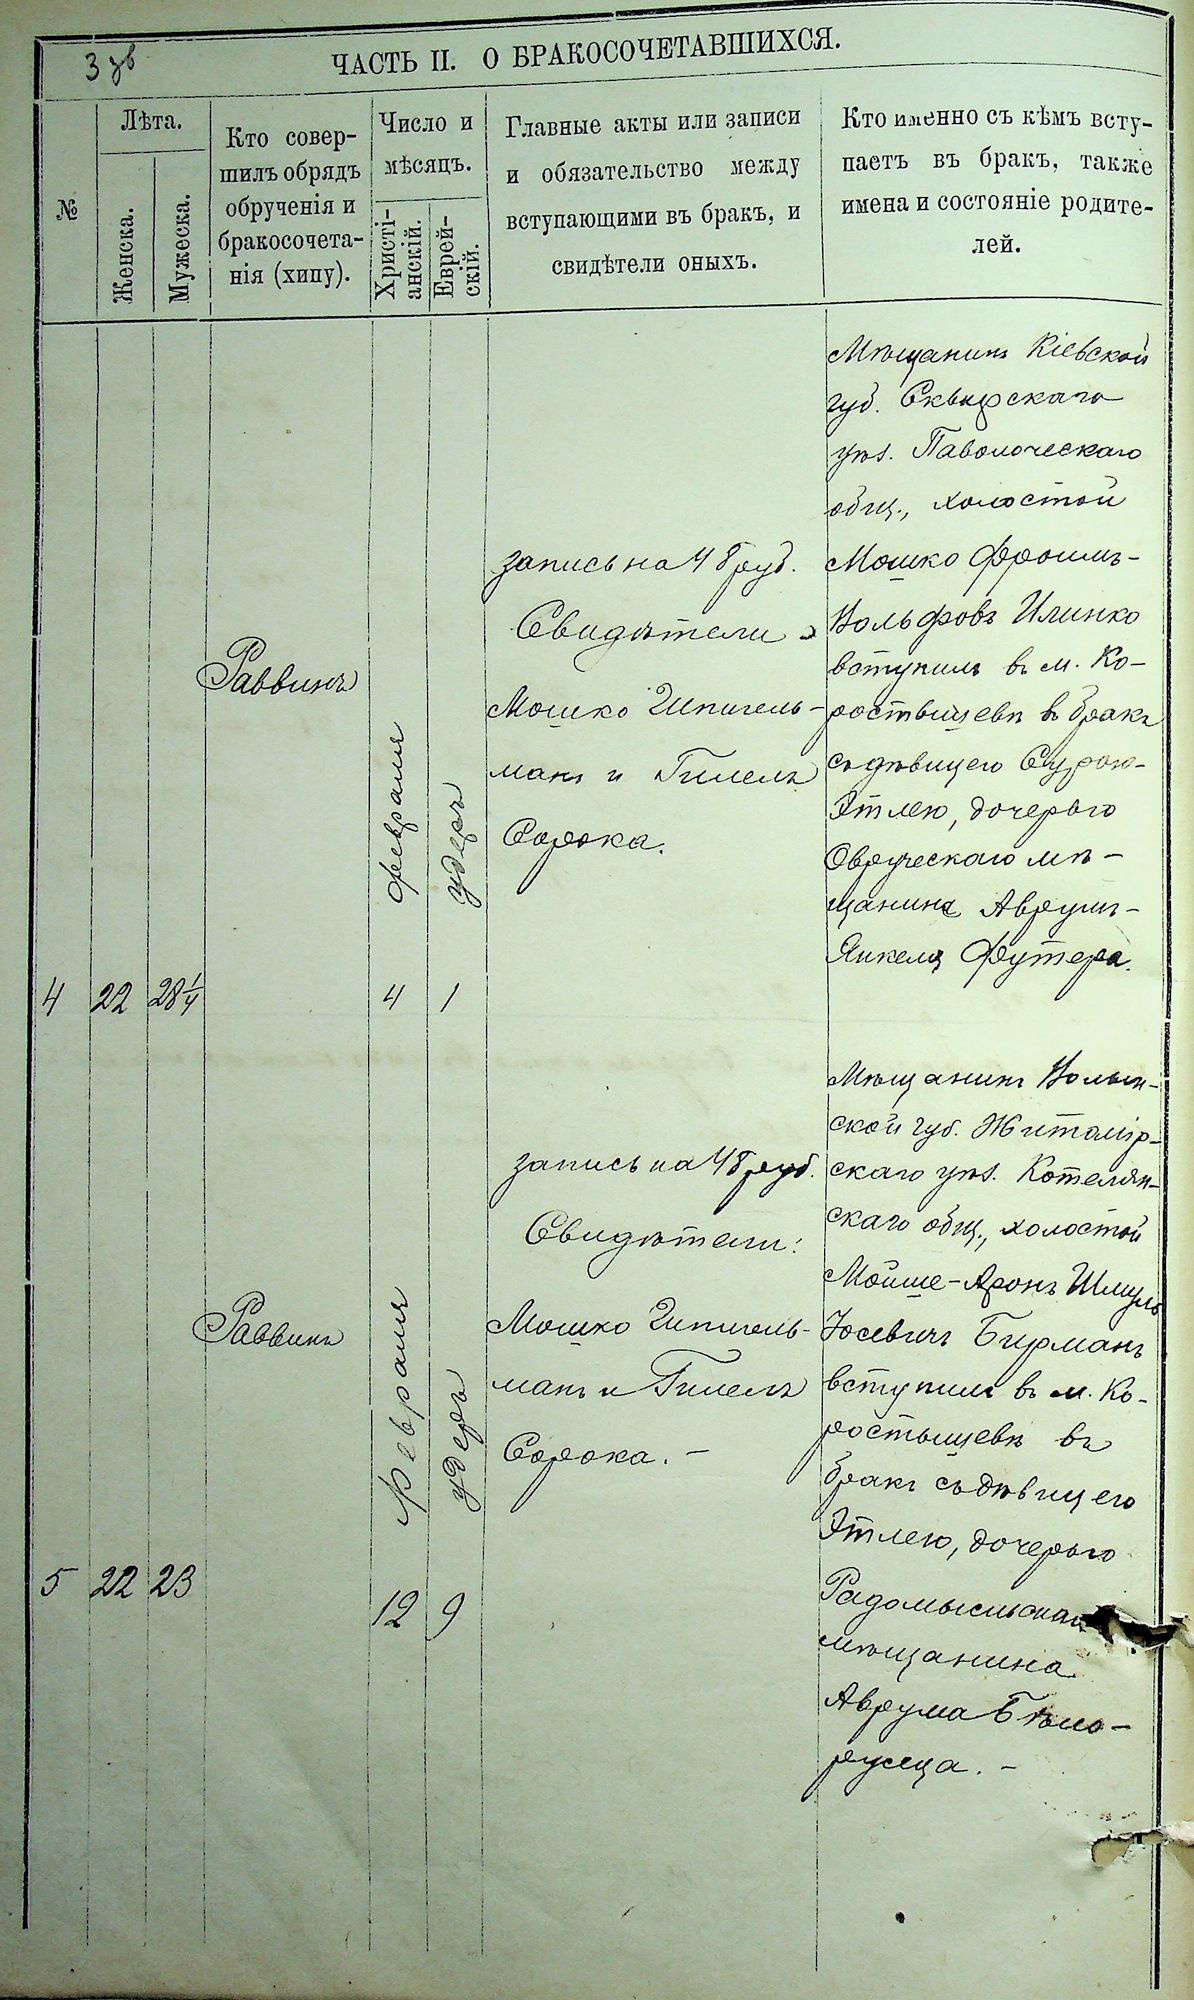 3 зв
ЧАСТЬ II. О БРАКОСОЧЕТАВШИХСЯ.
№
Лѣта.
Женска.
Мужеска.
Кто совер-
шилъ обрядъ
обрученія и
бракосочета-
нія (хипу).
Число и
мѣсяцъ.
Христі-
анскій.
Еврей-
скій.
Главные акты или записи
и обязательство между
вступающими въ бракъ, и
свидѣтели оныхъ.
Кто именно съ кѣмъ всту-
паетъ въ бракъ, также
имена и состояніе родите-
лей.
4
22
28 1/4
Раввинъ
февраля
4
удеръ
1
запись на 48 руб.
Свидѣтели
Мошко Шпигель-
манъ и Гилель
Сорока.
Мѣщанинъ Кіевской
губ. Сквирскаго
уѣз. Паволоческаго
общ., холостой
Мошко Фроимъ-
Вольфовъ Илинко
вступилъ въ м. Ко-
ростышевѣ въ бракъ
съ дѣвицею Сурою-
Этлею, дочерью
Овручскаго мѣ-
щанина Аврумъ-
Янкеля Футера.
5
22
23
Раввинъ
февраля
12
удеръ
9
запись на 48 руб.
Свидѣтели:
Мошко Шпигель-
манъ и Гилель
Сорока. -
Мѣщанинъ Волын-
ской губ. Житомір-
скаго уѣз. Котелян-
скаго общ., холостой
Мойше-Аронъ Шмуль
Юсевичъ Бирманъ
вступилъ въ м. Ко-
ростышевѣ въ
бракъ съ дѣвицею
Этлею, дочерью
Радомысльскаго
мѣщанина
Аврума Бѣло-
русца. -